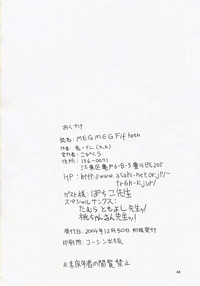 おくづけ
誌名: MEGMEG Fifteen
発行者:
住所: 136-0071
江東区亀戸6-8-3 豊川ビル205
HP: http://www.asahi-net.or.jp/~
tr6h-kjur/
ゲスト様: ぽちこ先生
スペシャルサンクス:
たむらともよし先生ッ!
桃ちゃんさん先生ッ!
発行日: 2004年12月30日 初版発行
印刷所: コーシン出版
※未成年者の閲覧禁止